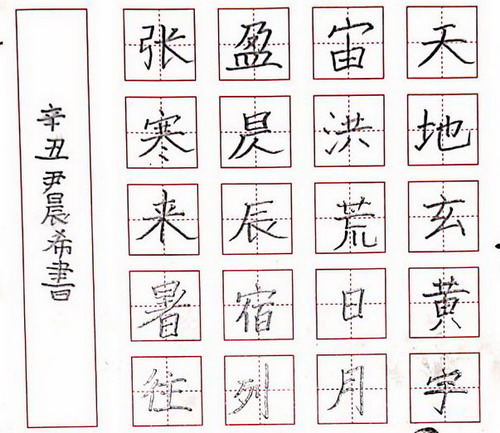 天地玄黄宇
宙洪荒日月
盈昃辰宿列
张寒来暑往
辛丑尹晨希書